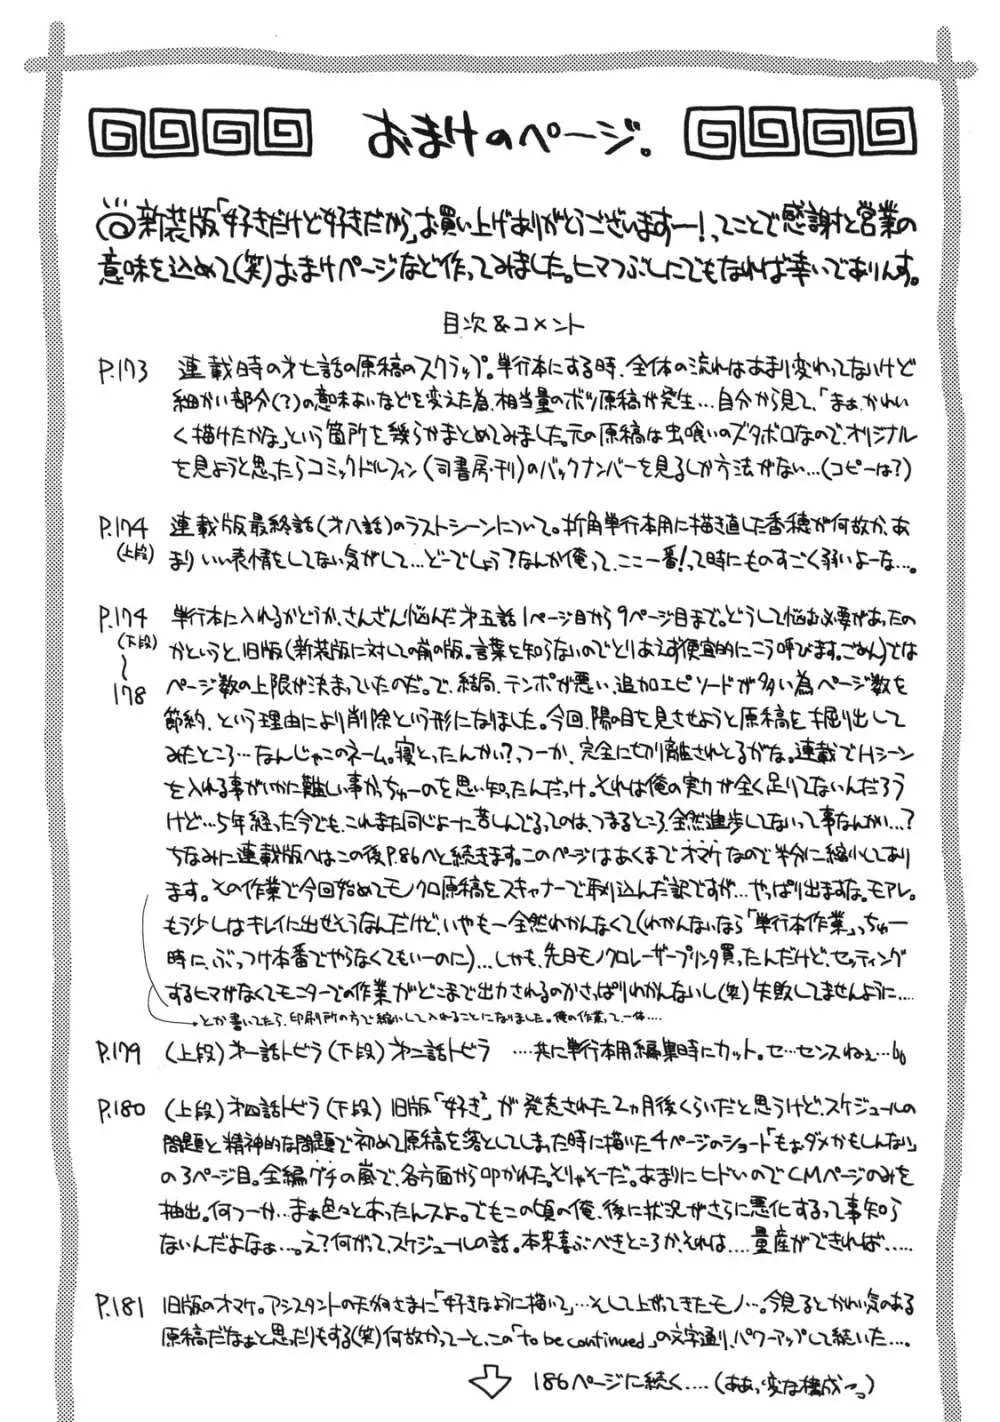 おまけのページ。
新装版「好きだけど好きだから」お買い上げありがとうございますー!ってことで感謝と営業の
意味を込めて(笑)おまけページなど作ってみました。ヒマつぶしにでもなれば幸いでありんす。
目次&コメント
P.173 連載時の才七話の原稿のスクラップ。単行本にする時、全体の流れはあまり変わってないけど
細かい部分(?)の意味あいなどを変えた為、相当量のボツ原稿が発生…自分から見て、「まぁ、かわい
く描けたかな」という箇所を幾らかまとめてみました。元の原稿は虫喰いのズタボロなので、オリジナル
を見ようと思ったらコミックドルフィン(司書房・刊)のバックナンバーを見るしか方法がない…(コピーは?)
P.174 連載版最終話(才八話)のラストシーンについて。折角単行本用に描き直した香穂が何故か、あ
(上段) まりいい表情をしてない気がして…どーでしょう?なんか俺って、ここ一番!って時にものすごく弱いよーな…。
P.174 単行本に入れるかどうか、さんざん悩んだ才五話1ページ目から9ページ目まで。どうして悩む必要があったの
(下段) かというと、旧版(新装版に対しての前の版。言葉を知らないのでとりあえず便宜的にこう呼びます。ごめん)では
〜
178 ページ数の上限が決まっていたのだ。で、結局、テンポが悪い、追加エピソードが多い為ページ数を
節約、という理由により削除という形になりました。今回、陽の目を見させようと原稿を掘り出して
みたところ…なんじゃこのネーム。寝とったんかい?、つーか、完全に切り離されとるがな。連載でHシーン
を入れる事がいかに難しい事かっちゅーのを思い知ったんだっけ。それは俺の実力が全く足りてないんだろう
けど…5年経った今でも、これまた同じよーに苦しんでるってのは、つまるところ、全然進歩してないって事なんかい…?
ちなみに連載版へはこの後P.86へと続きます。このページはあくまでオマケなので半分に縮小してあり
ます。その作業で今回始めてモノクロ原稿をスキャナーで取り込んだ訳ですが…やっぱり出ますな。モアレ。
もう少しはキレイに出せそうなんだけど、いやもー全然わかんなくて(わかんないなら「単行本作業」っちゅー
時に、ぶっつけ本番でやらなくてもいーのに)…しかも、先日モノクロレーザープリンタ買ったんだけど、セッティング
するヒマがなくてモニターでの作業がどこまで出力されるのかさっぱりわかんないし(笑)失敗してませんように….
→とか書いてたら、印刷所の方で縮小して入れることになりました。俺の作業って、一体….
P.179 (上段)才一話トビラ(下段)才二話トビラ ….共に単行本用編集時にカット。セ…センスねぇ…
P.180 (上段)才四話トビラ(下段)旧版「好き²」が発売された2ヵ月後くらいだと思うけど、スケジュールの
問題と精神的な問題で初めて原稿を落としてしまった時に描いた4ページのショート「もぉダメかもしんない」
の3ページ目。全編グチの嵐で、各方面から叩かれた。そりゃそーだ。あまりにヒドいのでCMページのみを
抽出。何つーか…まぁ色々とあったんスよ。でもこの頃の俺、後に状況がさらに悪化するって事知ら
ないんだよなぁ…。え?何がって、スケジュールの話。本来喜ぶべきところか、それは….量産ができれば…..
P.181 旧版のオマケ。アシスタントの天狗さまに「好きなように描いて」…そして上がってきたモノ…。今見るとかわい気のある
原稿だなぁと思ったりもする(笑)何故かってーと、この「to be continued」の文字通り、パワーアップして続いた….
186ページに続く….(ああっ変な構成っっ)